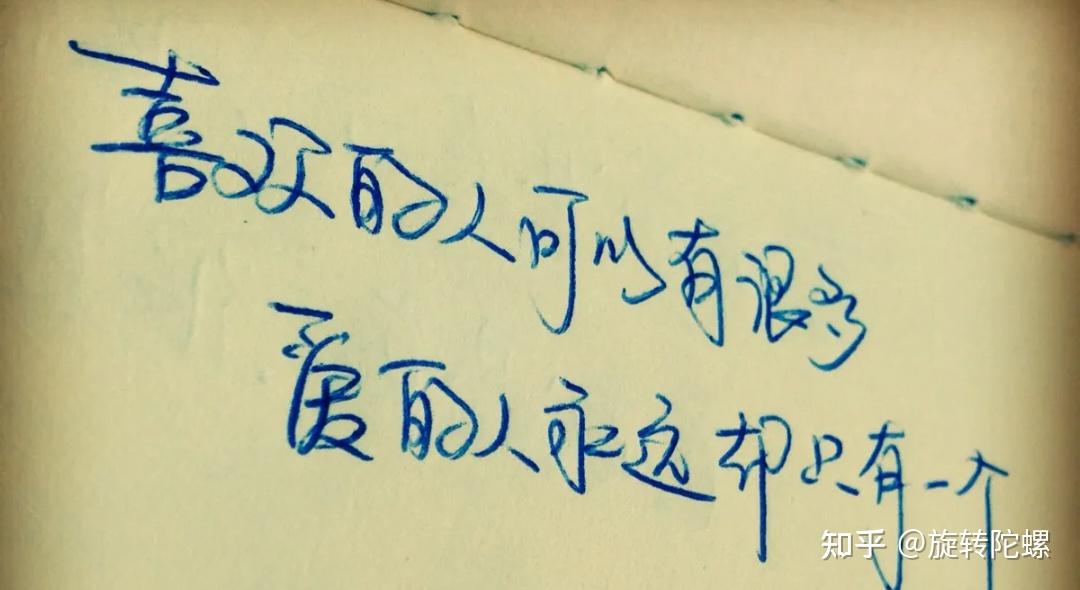 喜欢的人可以有很多
爱的人永远却只有一个
知乎 @旋转陀螺